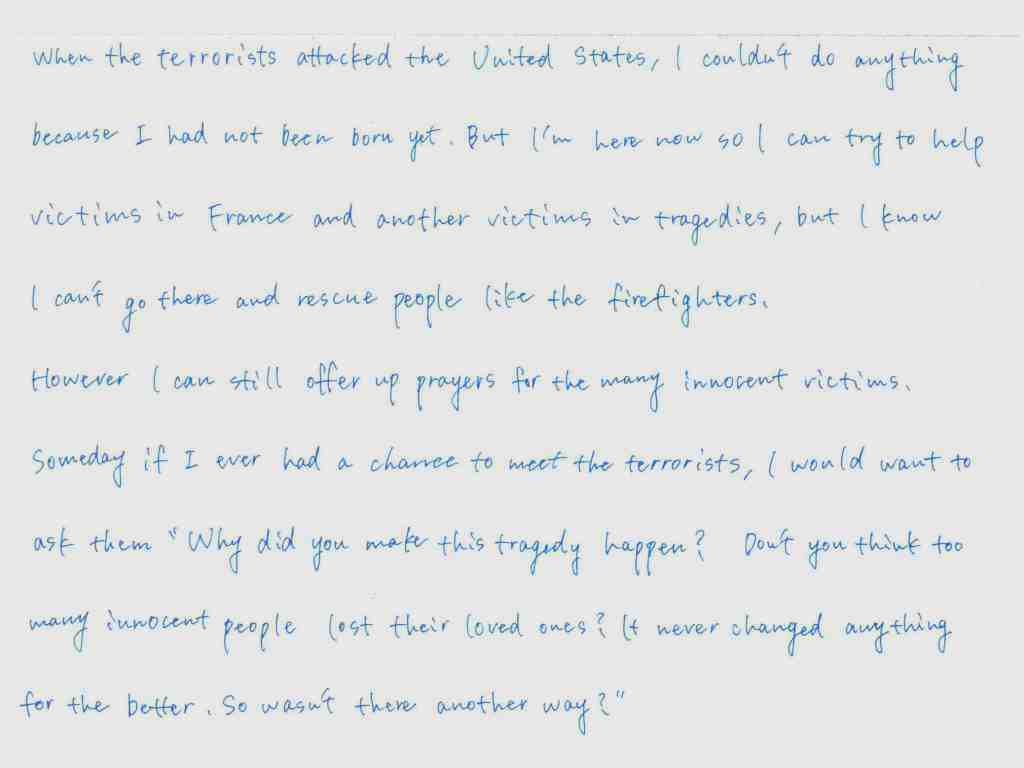 When the terrorists attacked the United States, I couldn't do anything
because I had not been born yet. But I'm here now so I can try to help
victims in France and another victims in tragedies, but I know
I can't go there and rescue people like the firefighters.
However I can still offer up prayers for the many innocent victims.
Someday if I ever had a chance to meet the terrorists, I would want to
ask them "Why did you make this tragedy happen? Don't you think too
many innocent people lost their loved ones? It never changed anything
for the better. So wasn't there another way?"